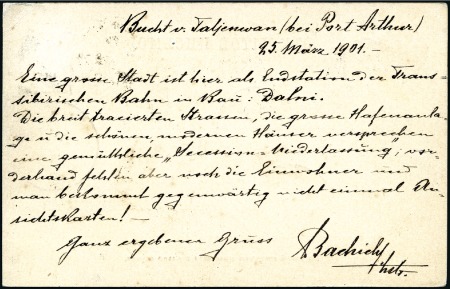 Bucht v. Taljenwan (bei Port Arthur)
25. März 1901.-
Eine grosse Stadt ist hier als Endstation der Trans-
sibirischen Bahn in Bau: Dalni.
Die breit tracierten Strassen, die grosse Hafenanla-
ge u die schönen, modernen Häuser versprechen
eine gemüthliche „Secession-Niederlassung"; vor-
derhand fehlen aber noch die Einwohner und
man bekommt gegenwärtig nicht einmal An-
sichtskarten! —
Ganz ergebenen Gruss Bachich